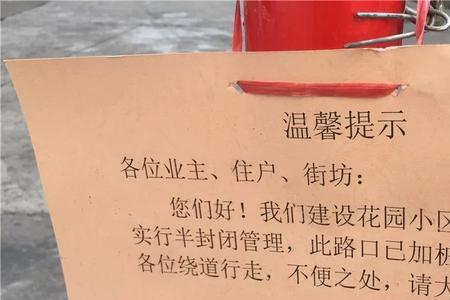 温馨提示
各位业主、住户、街坊：
您们好！我们建设花园小区
实行半封闭管理，此路口已加桩
各位绕道行走，不便之处，请大